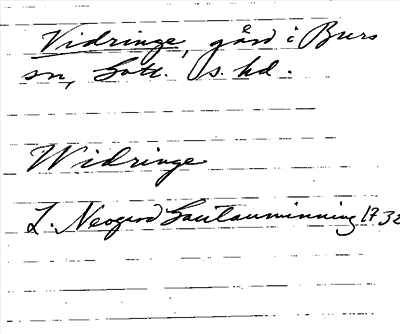 Vidringe, gård i Burs
sn, Gotl. s. hd.
Widringe
L. Neogard Gautauminning 1732